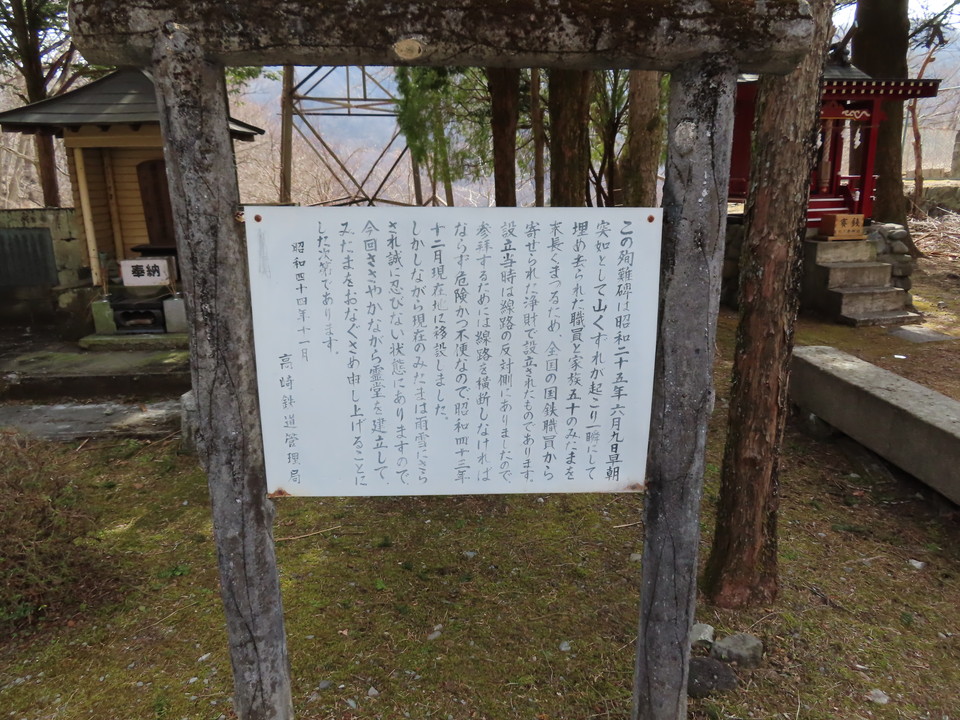 この殉難碑は昭和二十五年六月九日早朝
突如として山くずれが起こり一瞬にして
埋め去られた職員と家族五十のみたまを
末長くまつるため全国の国鉄職員から
寄せられた浄財で設立されたものであります。
設立当時は線路の反対側にありましたので、
参拝するためには線路を横断しなければ
ならず危険かつ不便なので、昭和四十三年
十二月現在地に移設しました。
しかしながら現在のみたまは雨雪にさら
され誠に忍びない状態にありますので、
今回ささやかながら霊堂を建立して、
みたまをおなぐさめ申し上げることに
した次第であります。
昭和四十四年十一月
高崎鉄道管理局
奉納